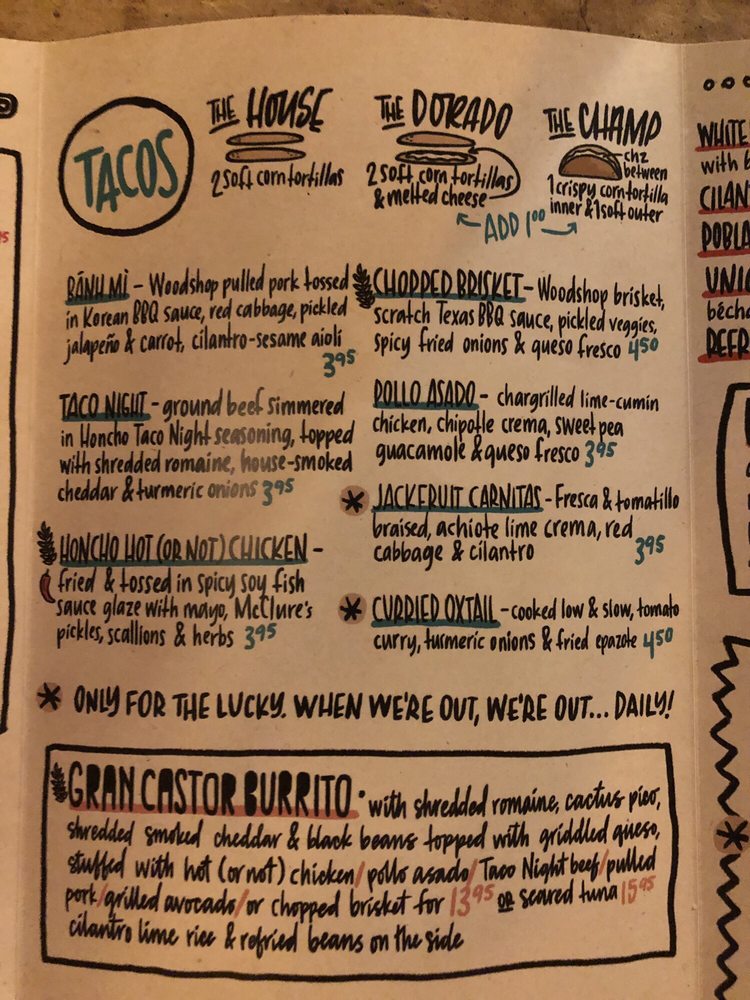 TACOS
THE HOUSE
2 soft corn tortillas
THE DORADO
2 soft corn tortillas
& melted cheese
THE CHAMP
chz
between
1 crispy corn tortilla
inner & 1 soft outer
ADD 1.00
BÁNH MÌ - Woodshop pulled pork tossed
in Korean BBQ sauce, red cabbage, pickled
jalapeño & carrot, cilantro-sesame aioli
3.95
TACO NIGHT - ground beef simmered
in Honcho Taco Night seasoning, topped
with shredded romaine, house-smoked
cheddar & turmeric onions 3.95
HONCHO HOT (OR NOT) CHICKEN -
fried & tossed in spicy soy fish
sauce glaze with mayo, McClure's
pickles, scallions & herbs 3.95
CHOPPED BRISKET - Woodshop brisket,
scratch Texas BBQ sauce, pickled veggies,
spicy fried onions & queso fresco 4.50
POLLO ASADO - chargrilled lime-cumin
chicken, chipotle crema, sweet pea
guacamole & queso fresco 3.95
* JACKFRUIT CARNITAS - Fresca & tomatillo
braised, achiote lime crema, red
cabbage & cilantro 3.95
* CURRIED OXTAIL - cooked low & slow, tomato
curry, turmeric onions & fried epazote 4.50
* ONLY FOR THE LUCKY. WHEN WE'RE OUT, WE'RE OUT... DAILY!
GRAN CASTOR BURRITO • with shredded romaine, cactus pico,
shredded smoked cheddar & black beans topped with griddled queso,
stuffed with hot (or not) chicken/pollo asado/Taco Night beef/pulled
pork/grilled avocado/or chopped brisket for 13.95 OR seared tuna 15.95
cilantro lime rice & refried beans on the side
WHITE
with b
CILAN
POBLA
UNIO
bécha
REFR